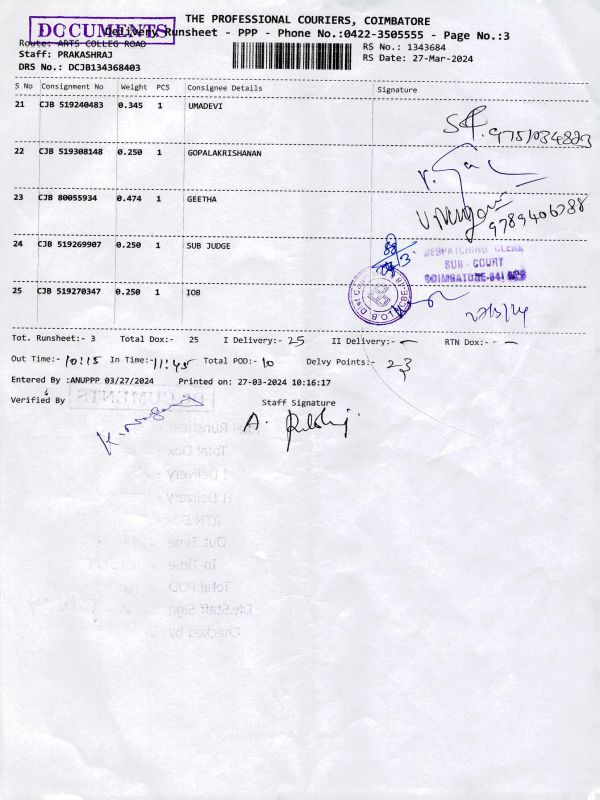 THE PROFESSIONAL COURIERS, COIMBATORE
DOCUMENTS
Delivery Runsheet - PPP - Phone No.:0422-3505555 - Page No.:3
Route: ARTS COLLEG ROAD
RS No.: 1343684
Staff: PRAKASHRAJ
RS Date: 27-Mar-2024
DRS No.: DCJB134368403
S No Consignment No Weight PCS Consignee Details Signature
21 CJB 519240483 0.345 1 UMADEVI
22 CJB 519308148 0.250 1 GOPALAKRISHANAN
23 CJB 80055934 0.474 1 GEETHA
9789406788
24 CJB 519269907 0.250 1 SUB JUDGE
DESPATCHING CLERK
SUB - COURT
COIMBATORE-641
25 CJB 519270347 0.250 1 IOB
27/3/24
Tot. Runsheet:- 3 Total Dox:- 25 I Delivery:- 25 II Delivery:- — RTN Dox:- -
Out Time:- 10:15 In Time:- 11:45 Total POD:- 10 Delvy Points:- 23
Entered By :ANUPPP 03/27/2024 Printed on: 27-03-2024 10:16:17
Verified By Staff Signature